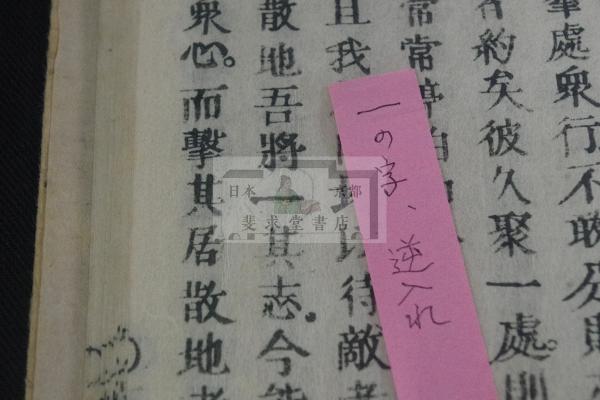 羣處衆行不
約矣彼久聚一處則
常常
且我
以待敵者
散地吾將一其志今
衆心而擊其居散地者
一の字、逆入れ
日本 京都
斐求堂書店